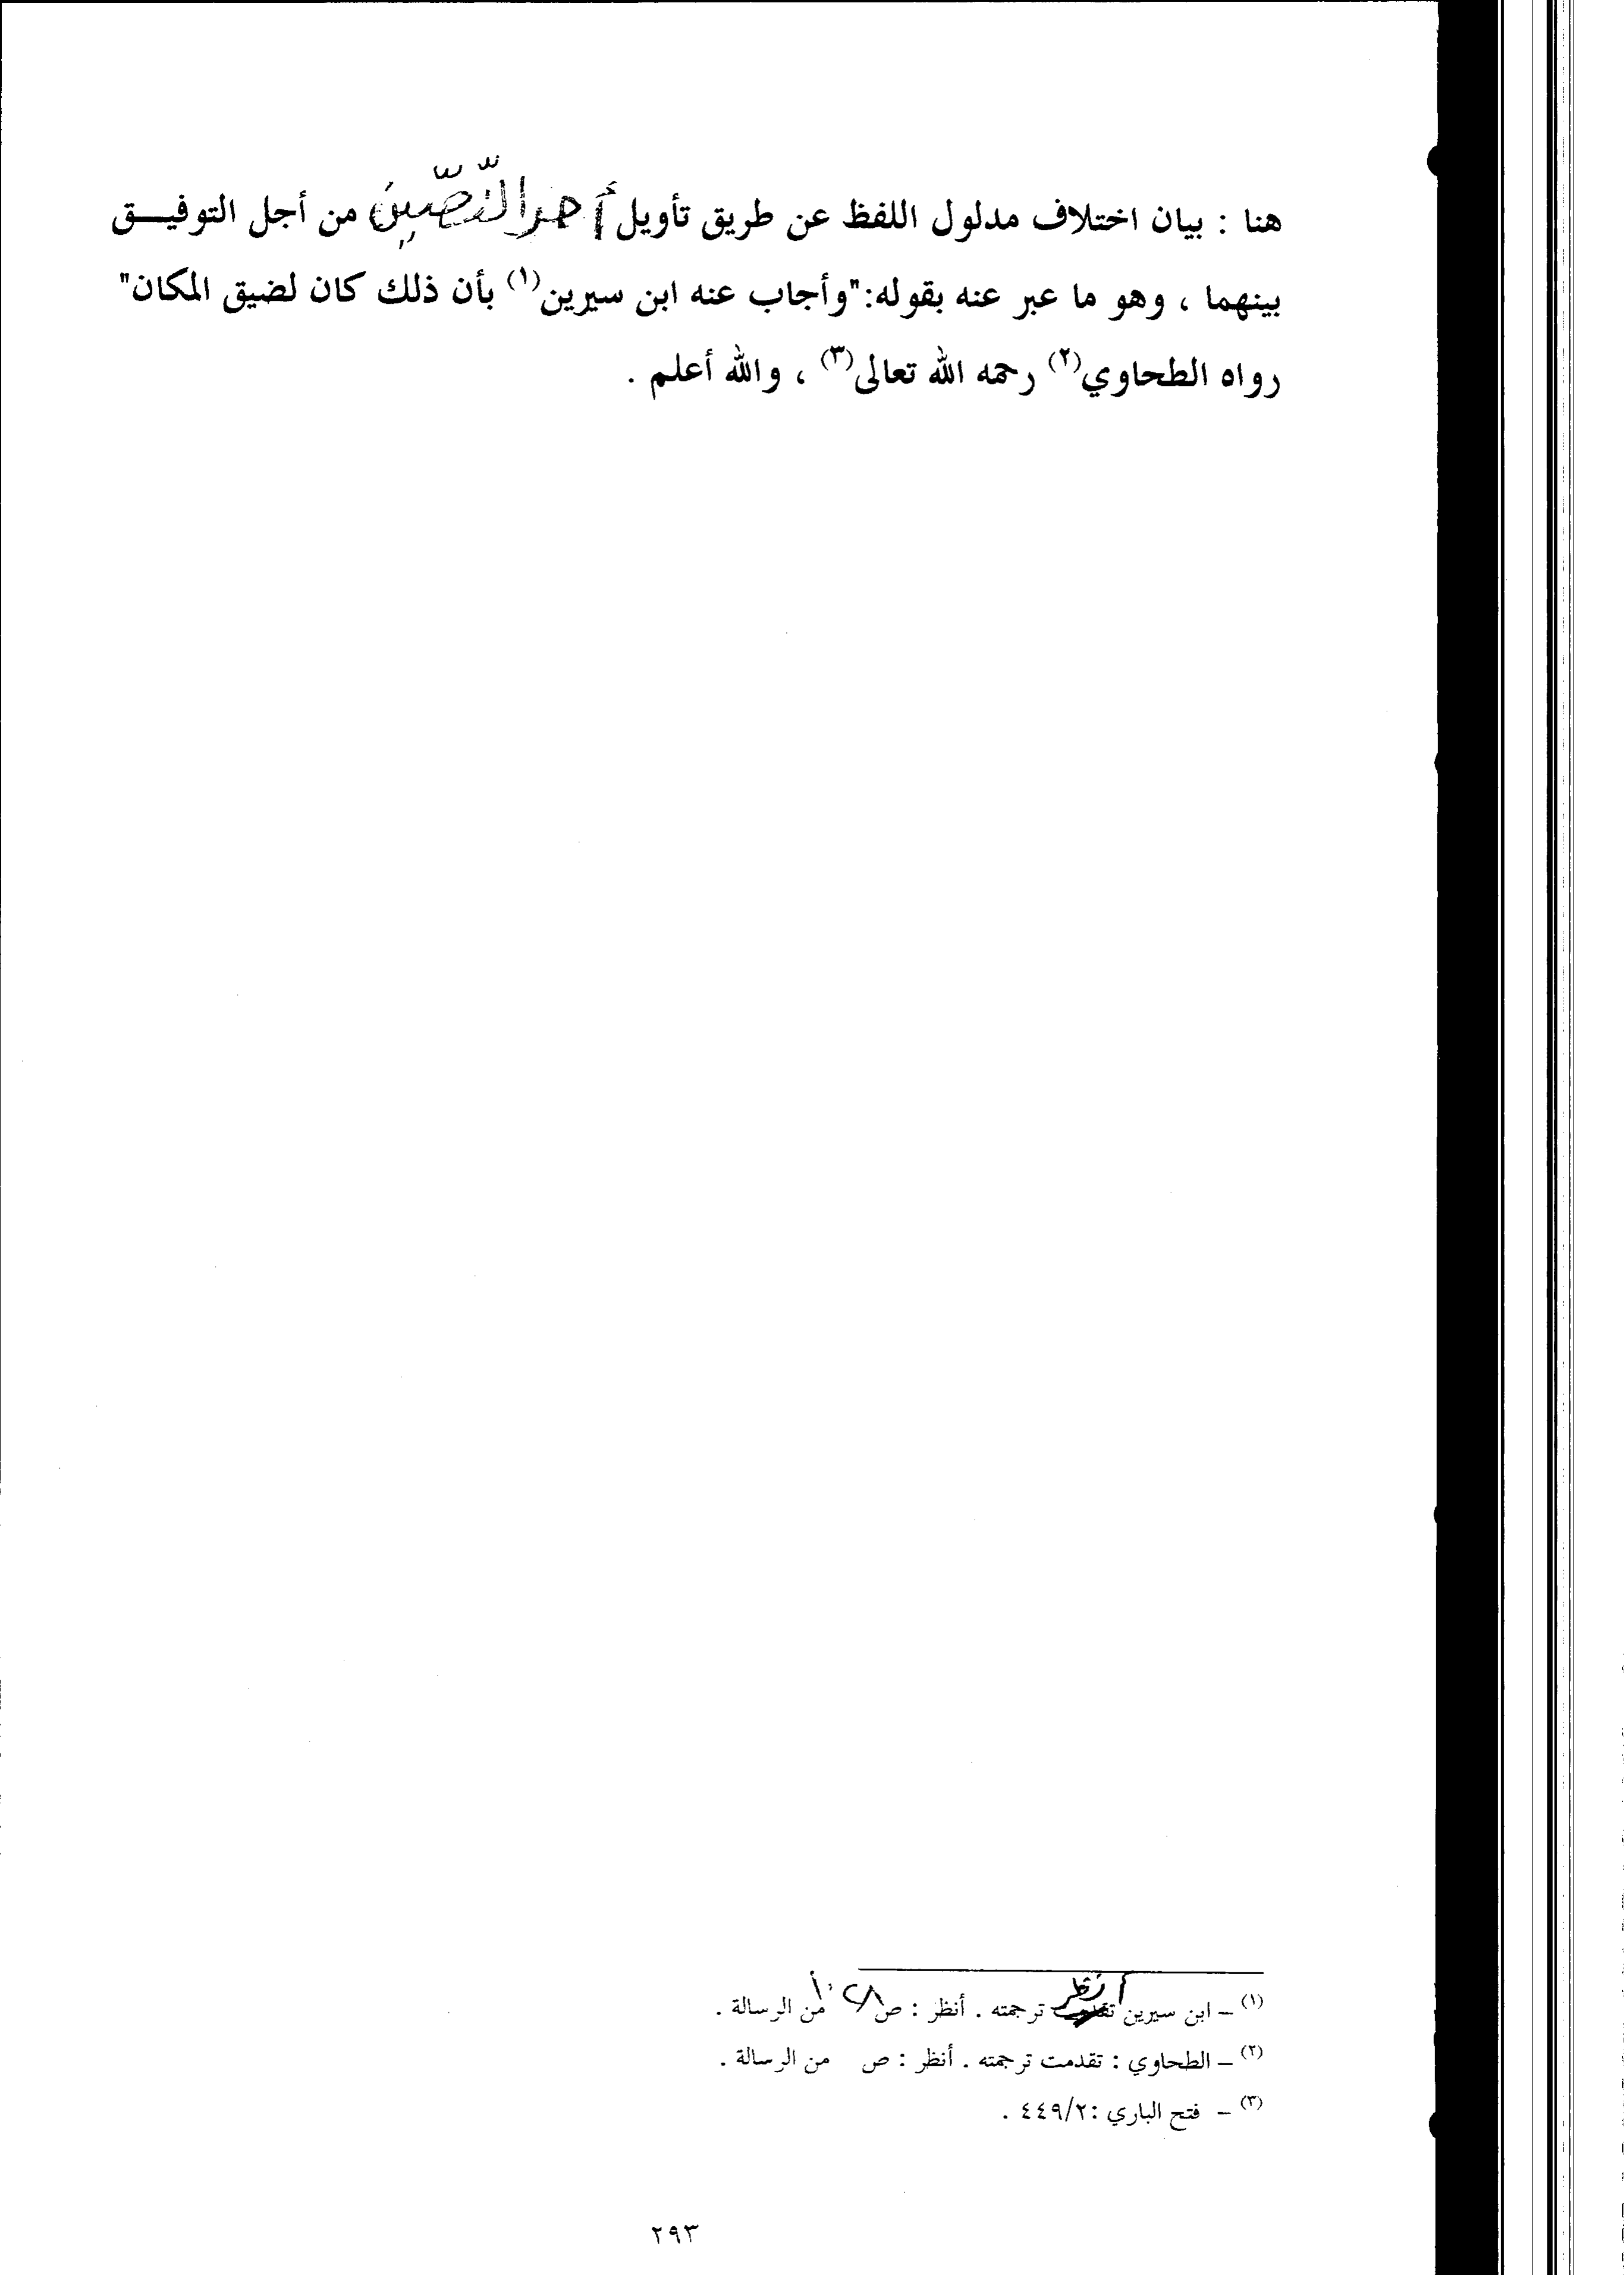 هنا : بيان اختلاف مدلول اللفظ عن طريق تأويل أحد النّصّين من أجل التوفيـــق
بينهما ، وهو ما عبر عنه بقوله:"وأجاب عنه ابن سيرين(١) بأن ذلك كان لضيق المكان"
رواه الطحاوي(٢) رحمه الله تعالى(٣) ، والله أعلم .
(١) – ابن سيرين ترجمته . أنظر : ص من الرسالة .
(٢) – الطحاوي : تقدمت ترجمته . أنظر : ص من الرسالة .
(٣) – فتح الباري :٤٤٩/٢ .
٢٩٣